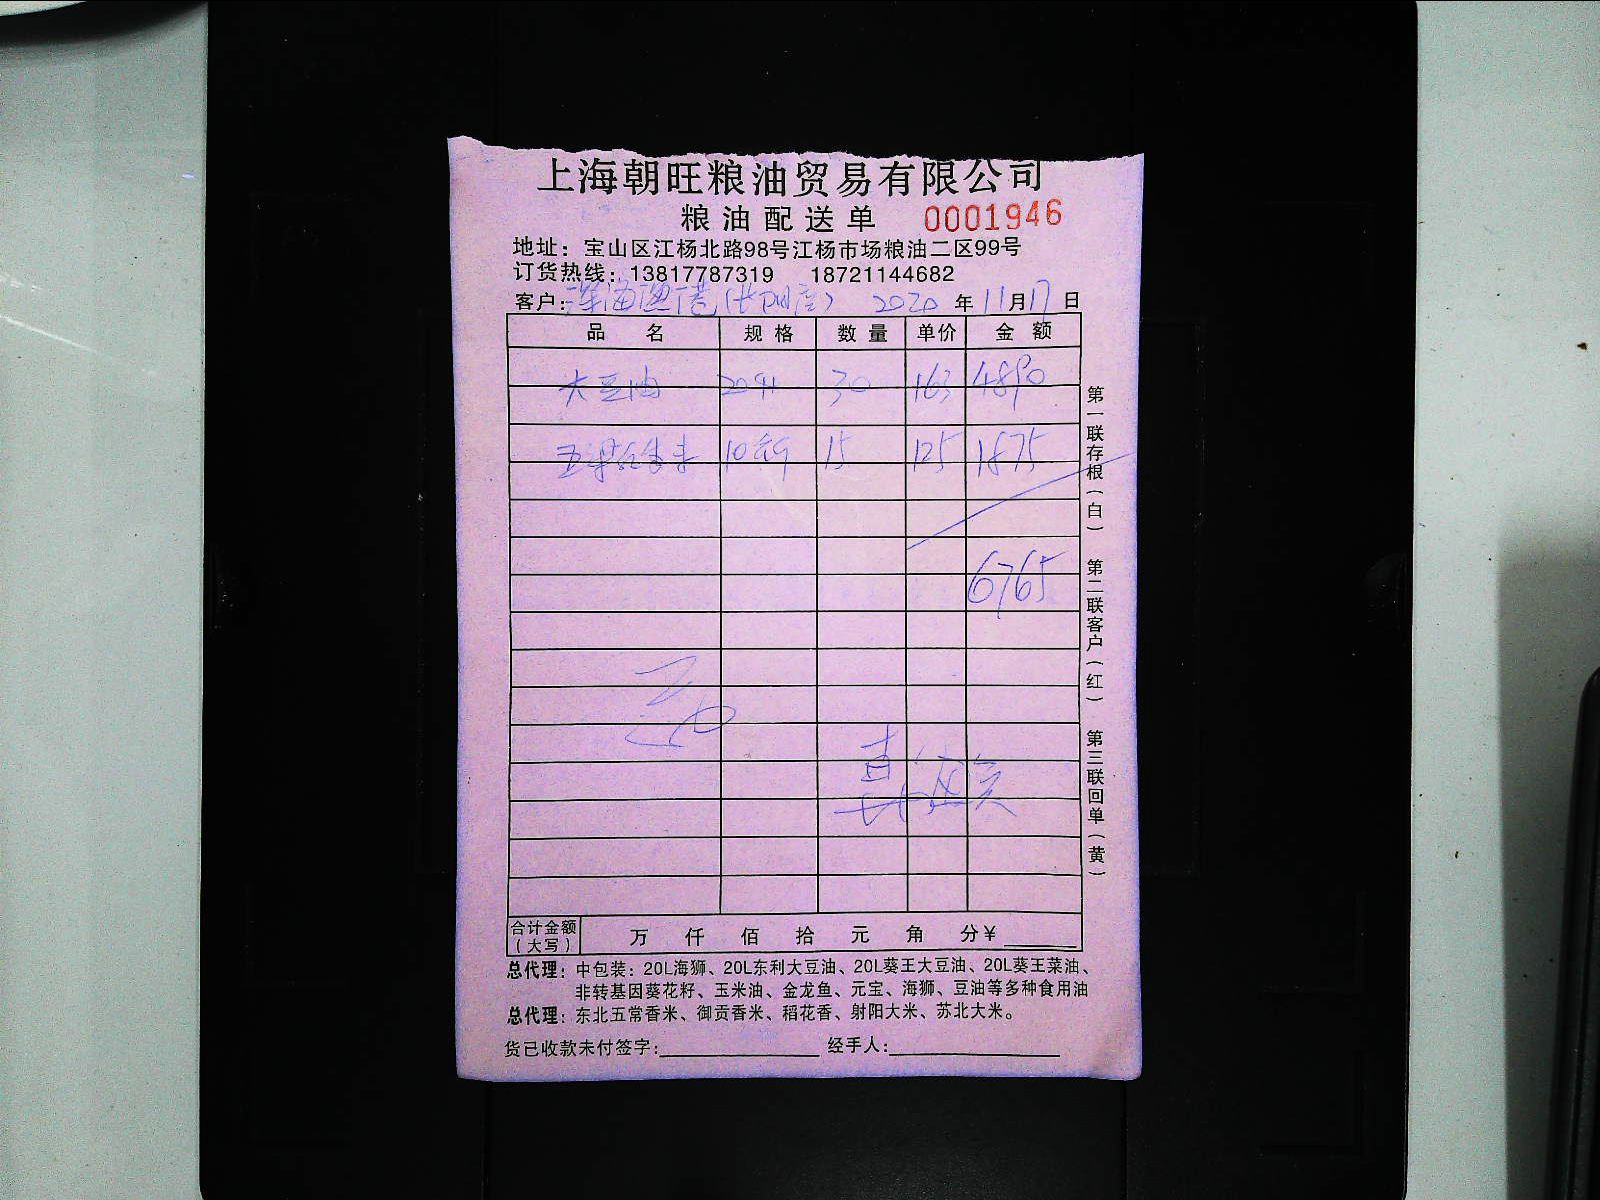 上海朝旺粮油贸易有限公司
粮油配送单 0001946
地址：宝山区江杨北路98号江杨市场粮油二区99号
订货热线：13817787319 18721144682
客户： 2020 年 11 月 17 日
品 名 规 格 数 量 单价 金 额
大豆油 30 163 4890
15 125 1875
6765
第一联存根（白） 第二联客户（红） 第三联回单（黄）
合计金额（大写） 万 仟 佰 拾 元 角 分￥
总代理：中包装：20L海狮、20L东利大豆油、20L葵王大豆油、20L葵王菜油、
非转基因葵花籽、玉米油、金龙鱼、元宝、海狮、豆油等多种食用油
总代理：东北五常香米、御贡香米、稻花香、射阳大米、苏北大米。
货已收款未付签字： 经手人：